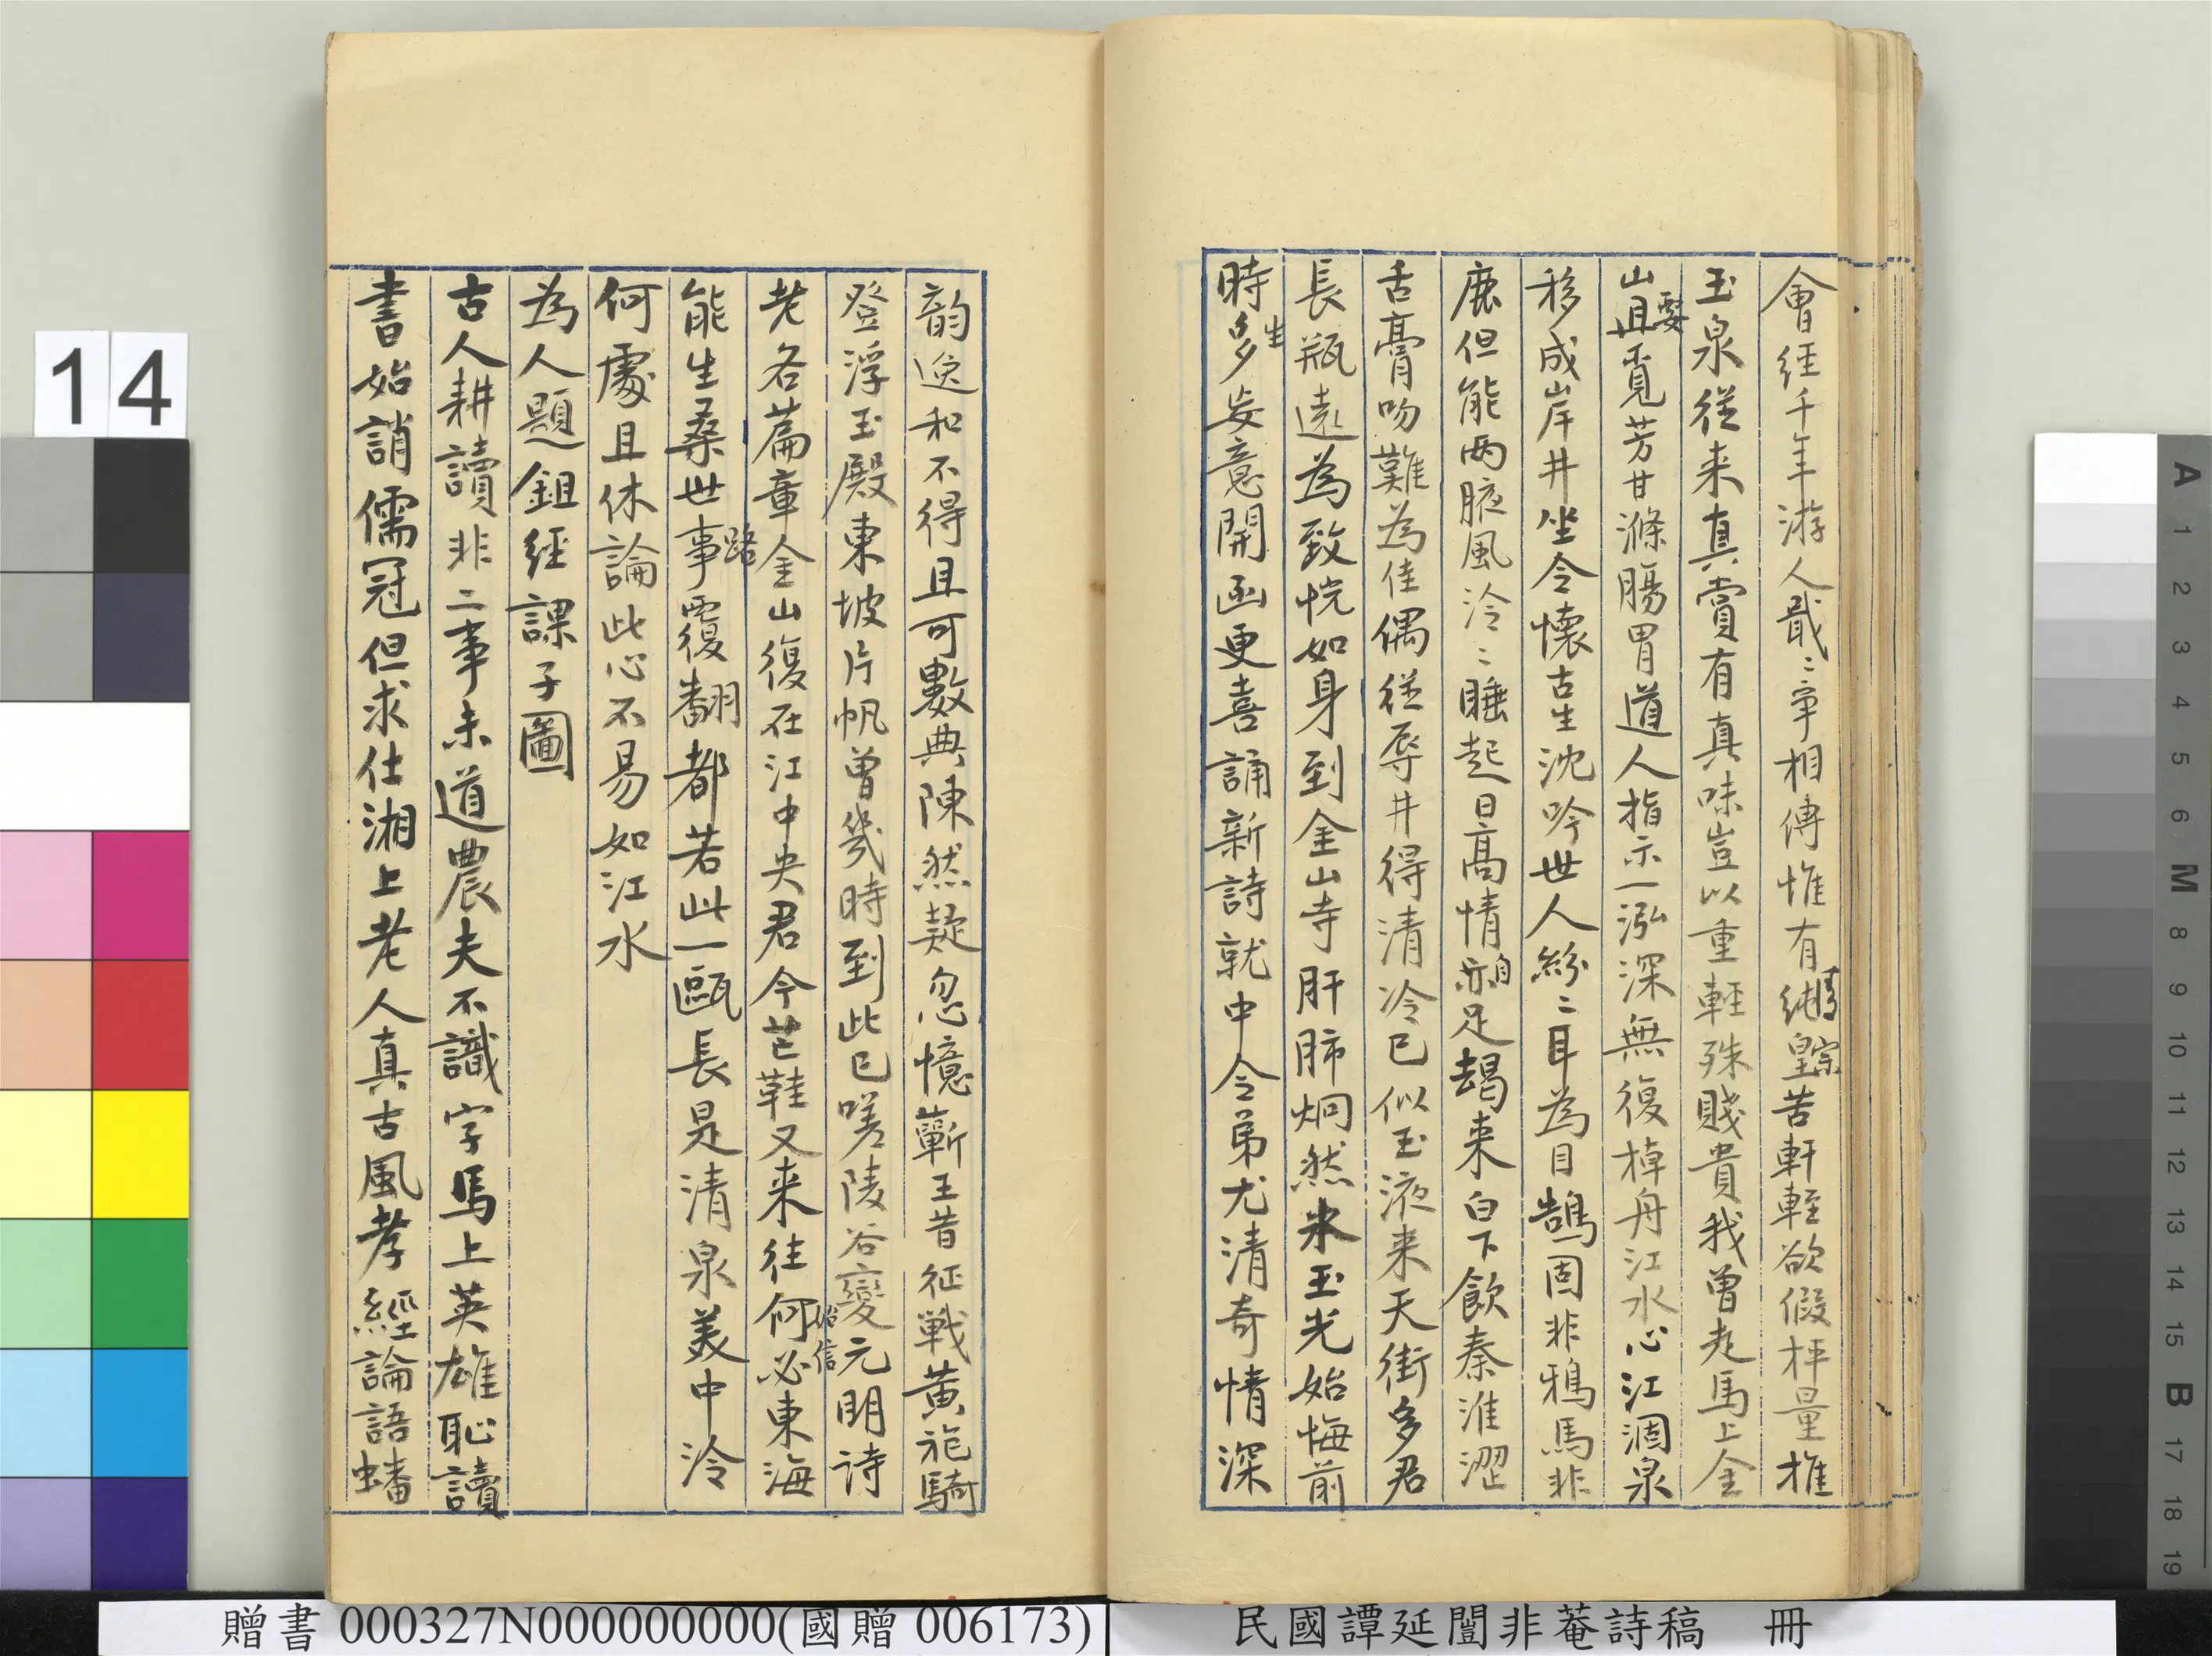 會經千年游人戢〻爭相傳惟有純皇苦軒輊欲假枰量推
清宗
玉泉從来真賞有真味豈以重輕殊賤貴我曾走馬上金
山且覓芳甘滌腸胃道人指示一泓深無復棹舟江水心江涸泉
移成岸井坐令懷古生沈吟世人紛〻耳為目鵠固非鴉馬非
鹿但能兩腋風泠〻睡起日高情亦足朅来白下飲秦淮澀
自
舌膏吻難為佳偶從辱井得清冷已似玉液来天街多君
長瓶遠為致恍如身到金山寺肝肺炯然氷玉光始悔前
時多妄意開函更喜誦新詩就中令弟尤清奇情深
生
韵逸和不得且可數典陳然疑忽憶蘄王昔征戰黃袍騎
登浮玉殿東坡片帆曾幾時到此已嗟陵谷變元明詩
老各篇章金山復在江中央君今芒鞋又来往何必東海
始信
能生桑世事覆翻都若此一甌長是清泉美中泠
路
何處且休論此心不易如江水
為人題鉏經課子圖
古人耕讀非二事未道農夫不識字馬上英雄恥讀
書始誚儒冠但求仕湘上老人真古風孝經論語蟠
14
贈書 000327N000000000(國贈 006173)
民國譚延闓非菴詩稿 冊
A 1 2 3 4 5 6 M 8 9 10 11 12 13 14 15 B 17 18 19